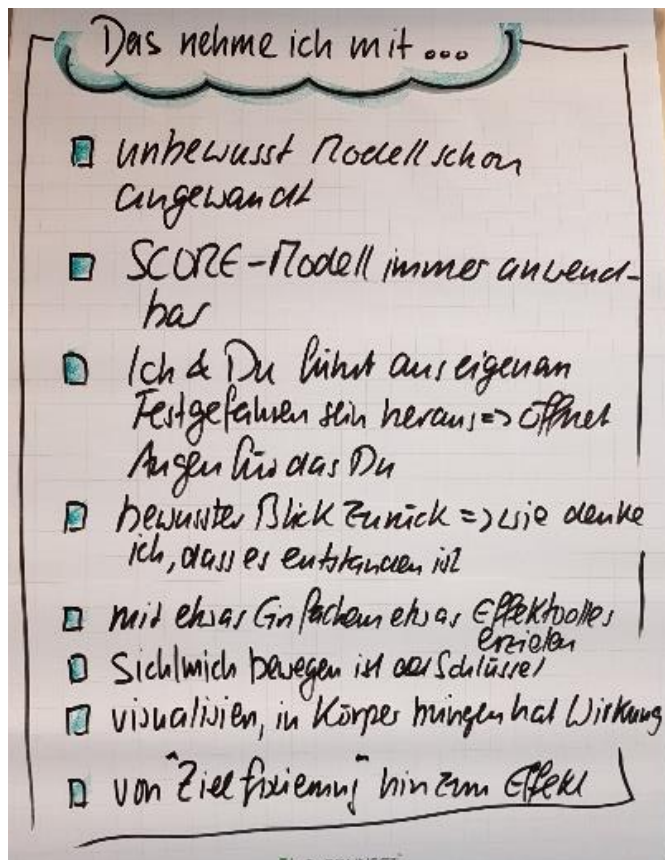 Das nehme ich mit ...
unbewusst Modell schon
angewandt
SCORE-Modell immer anwend-
bar
Ich & Du führt aus eigenen
Festgefahren sein heraus => öffnet
Augen für das Du
bewusster Blick zurück => wie denke
ich, dass es entstanden ist
mit etwas Einfachem etwas Effektvolles
erzielen
Sich/mich bewegen ist der Schlüssel
visualisien, in Körper bringen hat Wirkung
von "Zielfixierung" hin zum Effekt